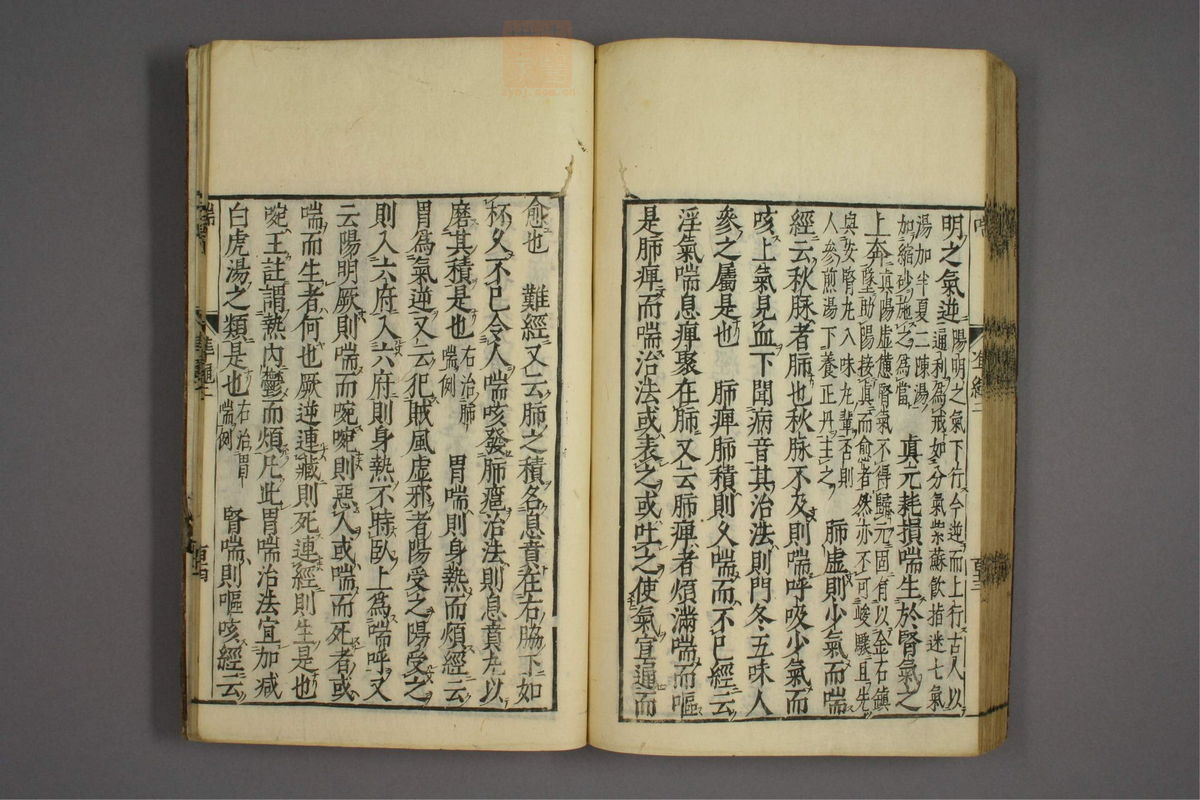 明之氣逆陽明之氣下行今逆而上行古人以
湯加半夏二陳湯指迷七氣
如縮砂施之為當
眞元耗損喘生於腎氣之
上奔眞陽虛憊腎氣不得歸元固有以金石鎮
墜助陽接眞而愈者然亦不可峻驟且先
與安腎丸八味丸輩否則
人參煎湯下養正丹主之
肺虛則少氣而喘
經云秋脉者肺也秋脉不及則喘呼吸少氣而
咳上氣見血下聞病音其治法則門冬五味人
參之屬是也　肺痺肺積則久喘而不已經云
淫氣喘息痺聚在肺又云肺痺者煩滿喘而嘔
是肺痺而喘治法或表之或吐之使氣宣通而
愈也　難經又云肺之積名息賁在右脇下如
杯久不已令人喘咳發肺癰治法則息賁丸以
磨其積是也右治肺喘例　胃喘則身熱而煩經云
胃爲氣逆又云犯賊風虛邪者陽受之陽受之
則入六府入六府則身熱不時臥上爲喘呼又
云陽明厥則喘而啘啘則惡人或喘而死者或
喘而生者何也厥逆連藏則死連經則生是也
啘王註謂熱內鬱而煩凡此胃喘治法宜加減
白虎湯之類是也右治胃喘例　腎喘則嘔咳經云